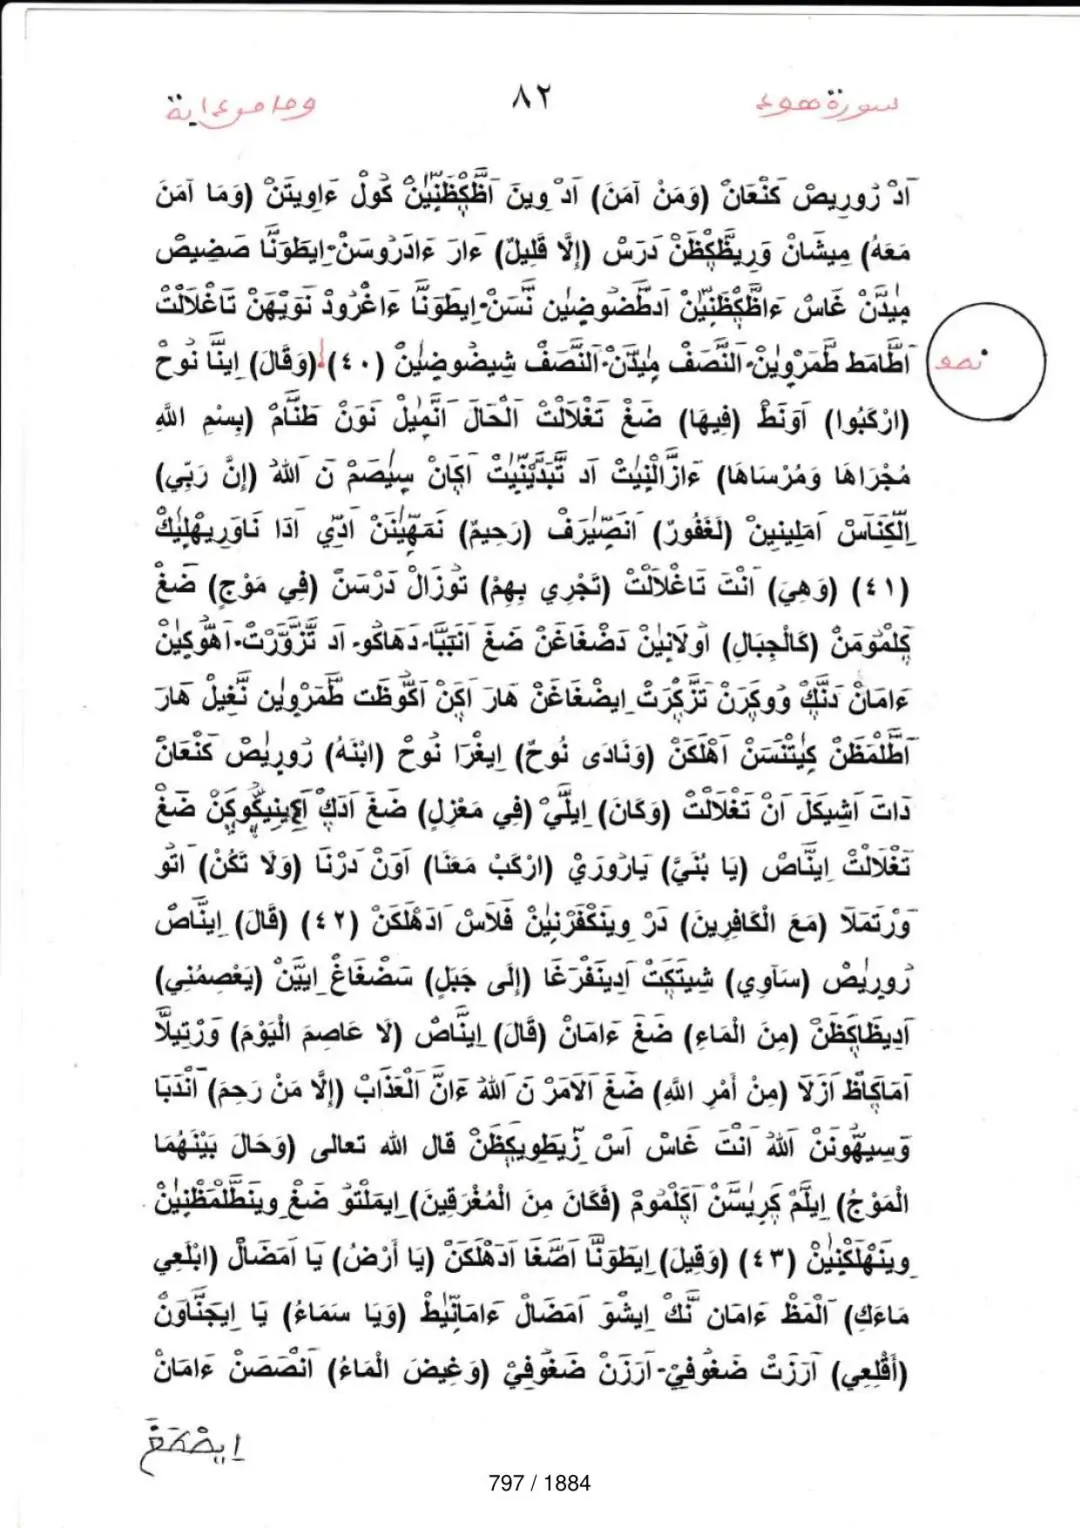 سورة هود ٨٢ وما من دابة
اَدْ رُورِيصْ كَنْعَانْ (وَمَنْ آمَنَ) اَدْ وِينَ اَظَّكِظَنِيِنْ كُولْ ءَاوِيتَنْ (وَمَا آمَنَ
مَعَهُ) مِيشَانْ وَرِيظَّكِظَنْ دَرَسْ (إِلَّا قَلِيلٌ) ءَارَ ءَادَرُوسَنْ-اِيطَوَنَّا صَضِيصْ
مِيدَّنْ غَاسْ ءَاظَّكِظَنِيِنْ اَدطَّضُوضِيِن نَّسَنْ-اِيطَوَنَّا ءَاغْرُودْ نَوِيهَنْ تَاغْلَالَتْ
اَطَّامَط طَمَرْوِيِنْ-اَلنَّصَفْ مِيدَّنْ-اَلنَّصَفْ شِيضُوضِيِنْ (٤٠) (وَقَالَ) اِينَّا نُوحْ
نصو
(ارْكَبُوا) اَوَنَطْ (فِيهَا) ضَغْ تَغْلَالَتْ اَلْحَالَ اَنَّمِيلْ نَوَنْ طَنَّامْ (بِسْمِ اللَّهِ
مُجْرَاهَا وَمُرْسَاهَا) ءَازَّالَنِّيتْ اَد تَّبَدِّيْنِّيتْ اَكَانْ سِيصَمْ نَ اللَّهُ (إِنَّ رَبِّي)
اِلْكَنَاسْ اَمَلِينِينْ (لَغَفُورٌ) اَنَصِّيرَفْ (رَحِيمٌ) نَمَهِّيْنَنْ اَدِّي اَدَا نَاوَرِيهْلِيكْ
(٤١) (وَهِيَ) اَنْتَ تَاغْلَالَتْ (تَجْرِي بِهِمْ) تُوزَالْ دَرْسَنْ (فِي مَوْجٍ) ضَغْ
كِلْمُومَنْ (كَالْجِبَالِ) اُولَانِيِنْ دَضْغَاغَنْ ضَغَ اَنَتِيبَّا-دَهَاكُو- اَد تَّزَّوَّرَتْ-اَهَّوكِيِنْ
ءَامَانْ دَنَّكْ وُوكِرَنْ تَزَّكِرَتْ اِيضْغَاغَنْ هَارَ اَكِنْ اَكُّوظَت طَّمَرْوِيِن نَّغِيلْ هَارَ
اَطَّلْمَظَنْ كِيتْنَسَنْ اَهْلَكَنْ (وَنَادَى نُوحٌ) اِيغْرَا نُوحْ (ابْنَهُ) رُورِيصْ كَنْعَانْ
دَاتَ اَشِيكَلَ اَنْ تَغْلَالَتْ (وَكَانَ) اِيلَّيْ (فِي مَعْزِلٍ) ضَغَ اَدَكْ اَكِينِيكُوكَنْ ضَغْ
تَغْلَالَتْ اِينَّاصْ (يَا بُنَيَّ) يَارُورَيْ (ارْكَبْ مَعَنَا) اَوَنْ دَرْنَا (وَلَا تَكُنْ) اَتُو
وَرْتَمَلَا (مَعَ الْكَافِرِينَ) دَرْ وِينَكْفَرْنِيِنْ فَلَاسْ اَدَهْلَكَنْ (٤٢) (قَالَ) اِينَّاصْ
رُورِيصْ (سَآوِي) شِيتَكِتْ اَدِينَفْرَغَا (إِلَى جَبَلٍ) سَضْغَاغْ اِيَيَّنْ (يَعْصِمُنِي)
اَدِيظَاكِظَنْ (مِنَ الْمَاءِ) ضَغَ ءَامَانْ (قَالَ) اِينَّاصْ (لَا عَاصِمَ الْيَوْمَ) وَرْتِيلَّا
اَمَاكَّاظْ اَزَلَا (مِنْ أَمْرِ اللَّهِ) ضَغَ اَلَامَرْ نَ اللَّهُ ءَانَّ اَلْعَذَابْ (إِلَّا مَنْ رَحِمَ) اَنْدَبَا
وَسِيهُونَنْ اَللَّهُ اَنْتَ غَاسْ اَسْ زِيطَوِيكِظَنْ قال الله تعالى (وَحَالَ بَيْنَهُمَا
الْمَوْجُ) اِيلَّمْ كَرِيسَّنْ اَكِلْمُومْ (فَكَانَ مِنَ الْمُغْرَقِينَ) اِيمَلْتُوَ ضَغْ وِينَطَّلْمَظْنِيِنْ
وِينَهْلَكْنِيِنْ (٤٣) (وَقِيلَ) اِيطَوَنَّا اَصَّغَا اَدَهْلَكَنْ (يَا أَرْضُ) يَا اَمَضَالْ (ابْلَعِي
مَاءَكِ) اَلْمَظْ ءَامَان نَّكْ اِيشْوَ اَمَضَالْ ءَامَانِّيطْ (وَيَا سَمَاءُ) يَا اِيجَنَّاوَنْ
(أَقْلِعِي) اَرَزَتْ ضَغُوفِيْ-اَرَزَنْ ضَغُوفِيْ (وَغِيضَ الْمَاءُ) اَنْصَصَنْ ءَامَانْ
797 / 1884